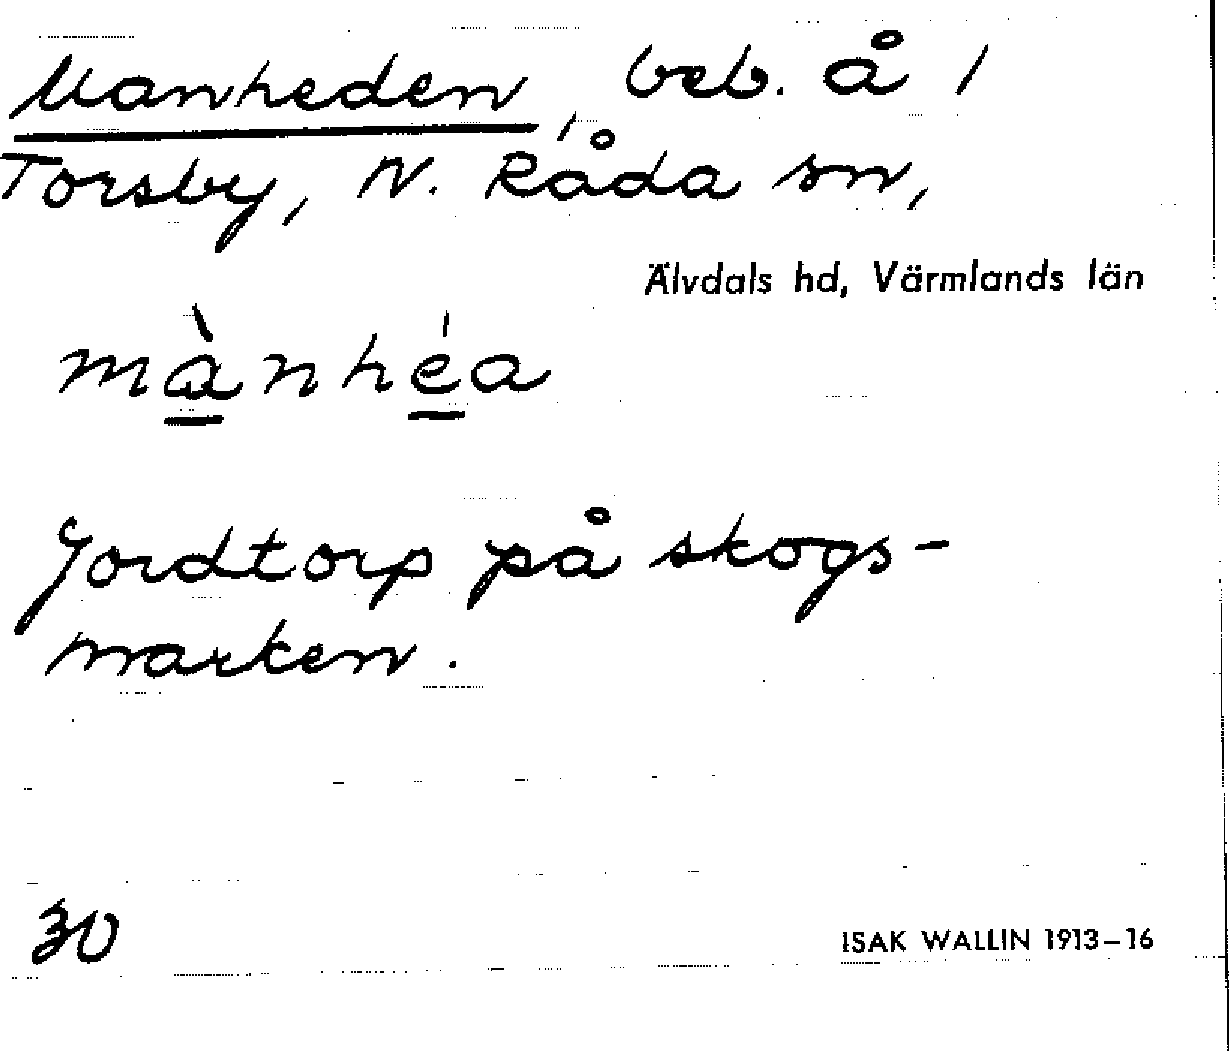 Manheden, beb. å 1
Torsby, N. Råda sn,
Älvdals hd, Värmlands län
mànhéa
Jordtorp på skogs-
marken.
30
ISAK WALLIN 1913–16